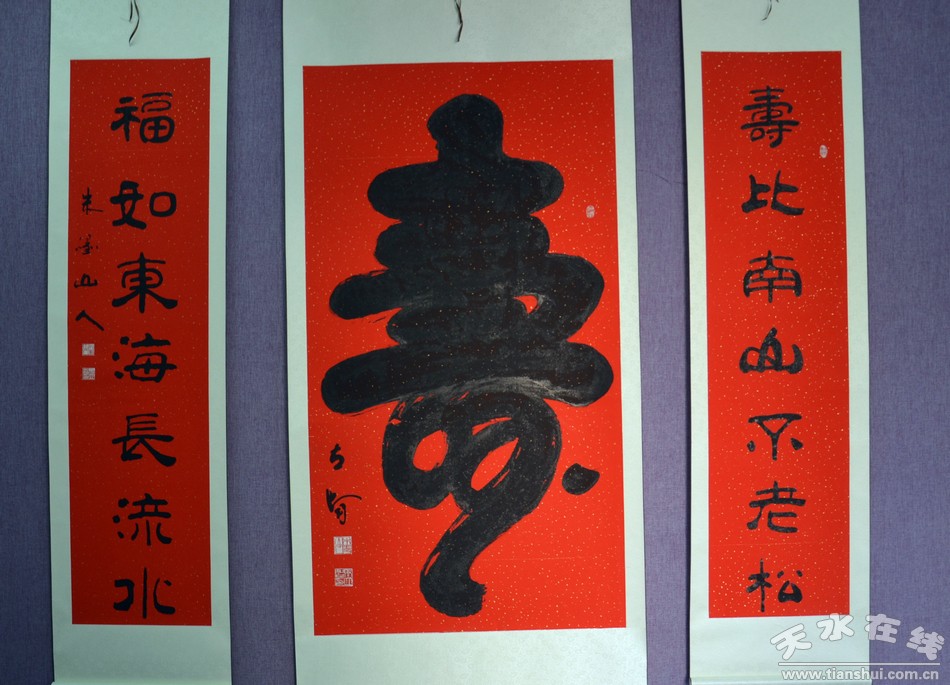 壽比南山不老松
壽
福如東海長流水
天水在线
www.tianshui.com.cn